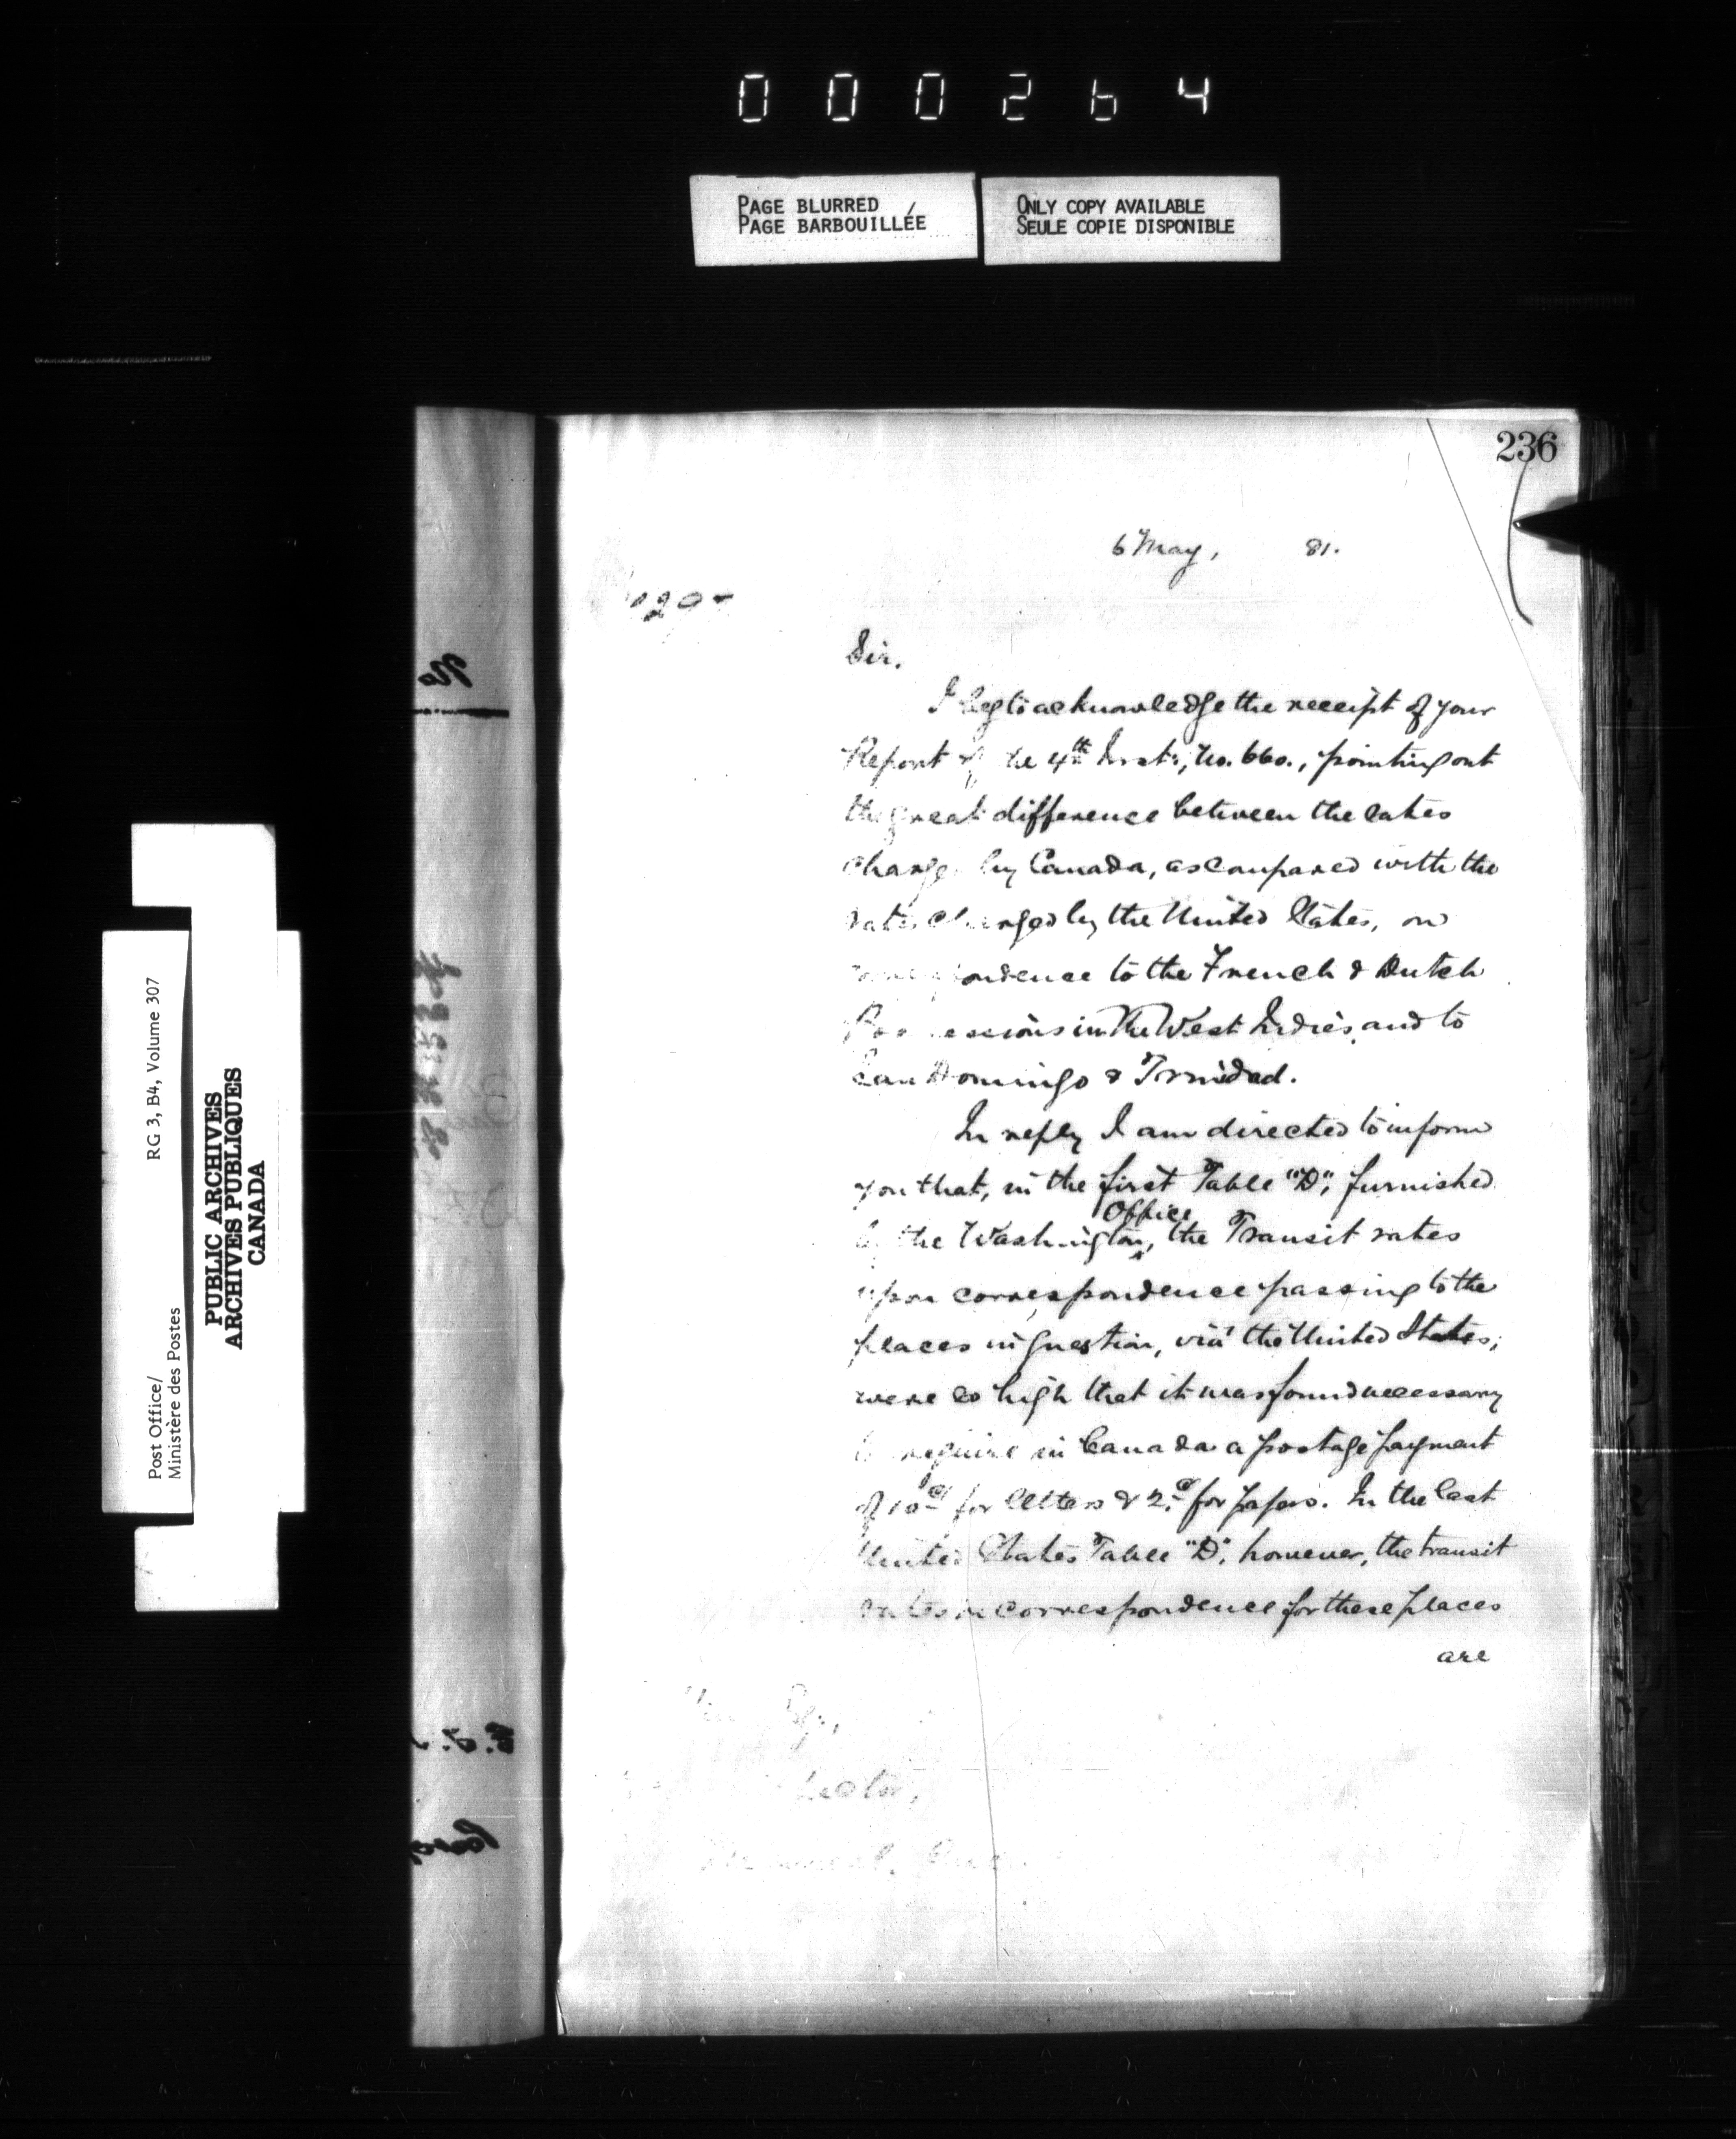 000264
PAGE BLURRED
PAGE BARBOUILLÉE
ONLY COPY AVAILABLE
SEULE COPIE DISPONIBLE
236
6 May, 81.
Sir.
I beg to acknowledge the receipt of your
Report of the 4th Inst., No. 660., pointing out
the great difference between the rates
charged by Canada, as compared with the
rates charged by the United States, on
correspondence to the French & Dutch
Possessions in the West Indies, and to
San Domingo & Trinidad.
In reply I am directed to inform
you that, in the first Table "D", furnished
by the Washington Office, the Transit rates
upon correspondence passing to the
places in question, via the United States,
were so high that it was found necessary
to require in Canada a postage payment
of 10c for letters & 2c for papers. In the last
United States Table "D", however, the transit
rates on correspondence for these places
are
Post Office/
Ministère des Postes
RG 3, B4, Volume 307
PUBLIC ARCHIVES
ARCHIVES PUBLIQUES
CANADA